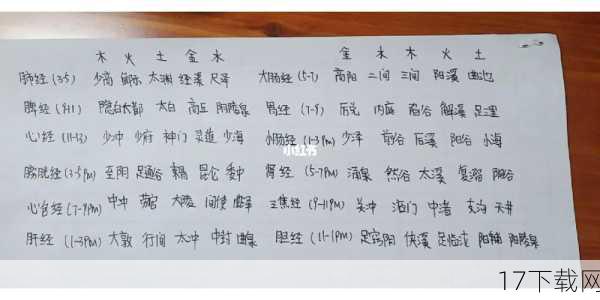 木 火 土 金 水 金 水 木 火 土
肺经 (3-5) 少商 鱼际 太渊 经渠 尺泽 大肠经 (5-7) 商阳 二间 三间 阳溪 曲池
脾经 (9-11) 隐白 大都 太白 商丘 阴陵泉 胃经 (7-9) 厉兑 内庭 陷谷 解溪 足三里
心经 (11-13) 少冲 少府 神门 灵道 少海 小肠经 (1-3pm) 少泽 前谷 后溪 阳谷 小海
小红书
膀胱经 (3-5pm) 至阴 足通谷 束骨 昆仑 委中 肾经 (5-7pm) 涌泉 然谷 太溪 复溜 阴谷
心包经 (7-9pm) 中冲 劳宫 大陵 间使 曲泽 三焦经 (9-11pm) 关冲 液门 中渚 支沟 天井
肝经 (1-3pm) 大敦 行间 太冲 中封 曲泉 胆经 (11-1pm) 足窍阴 侠溪 足临泣 阳辅 阳陵泉
17下载网